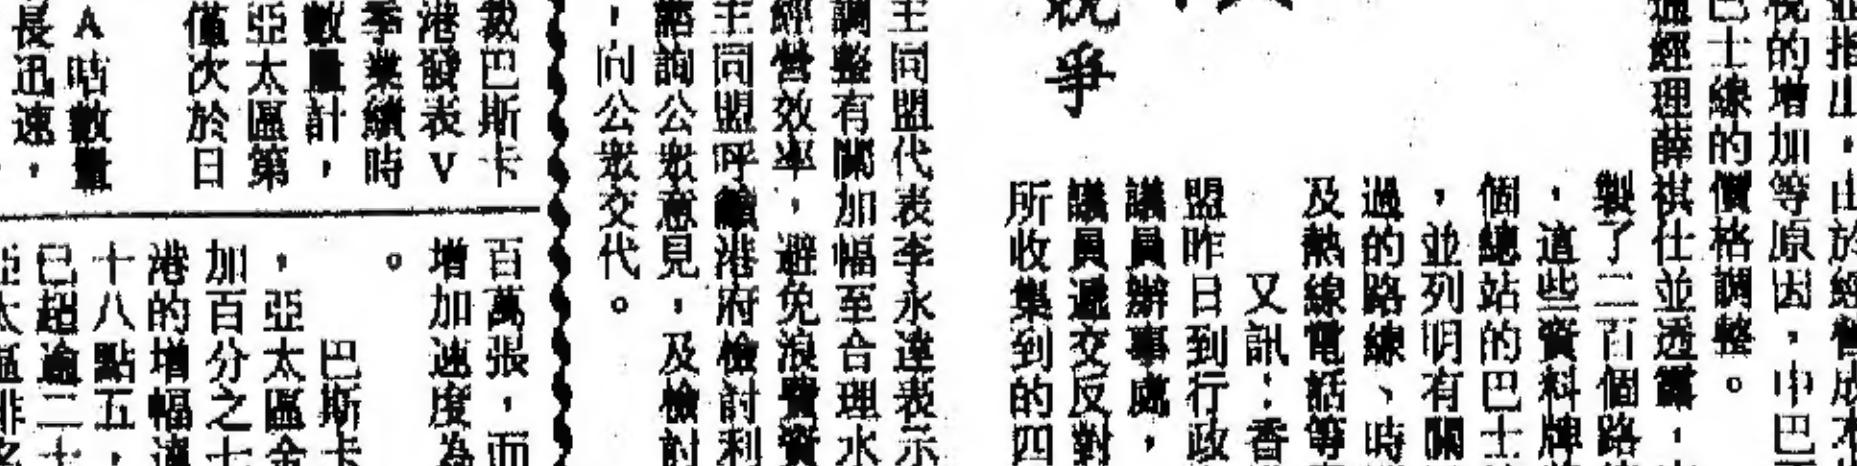 並指出，由於經營成本
稅的增加等原因，中巴
巴士線的價格調整。
通經理薛祺仕並透露，
製了二百個路
，這些資料牌
個總站的巴士
，並列明有關
過的路線、時
及熱線電話等
又訊：香
盟昨日到行政
議員辦事處，
議員遞交反對
所收集到的四
爭
主同盟代表李永達表示
調整有關加幅至合理水
經營效率，避免浪費資
主同盟呼籲港府檢討利
諮詢公眾意見，及檢討
，向公眾交代。
裁巴斯卡
港發表V
季業績時
數量計，
亞太區第
僅次於日
A咭數量
長迅速，
百萬張，而
增加速度為
。
巴斯卡
，亞太區金
加百分之七
港的增幅達
十八點五，
已超逾二十
亞太區排名